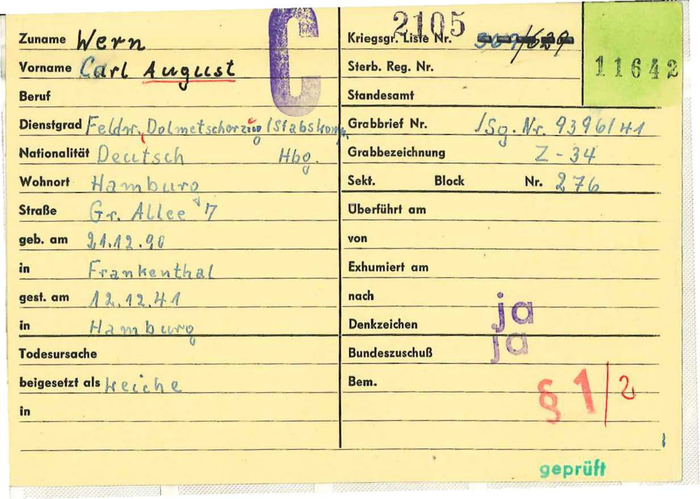 C
Zuname Wern
Vorname Carl August
Beruf
Dienstgrad Feldw. Dolmetscherzug /Stabskomp.
Nationalität Deutsch Hbg.
Wohnort Hamburg
Straße Gr. Allee 7
geb. am 21.12.90
in Frankenthal
gest. am 12.12.41
in Hamburg
Todesursache
beigesetzt als Leiche
in
2105
Kriegsgr. Liste Nr. /629
11642
Sterb. Reg. Nr.
Standesamt
Grabbrief Nr. /Sg. Nr. 9396/41
Grabbezeichnung Z-34
Sekt. Block Nr. 276
Überführt am
von
Exhumiert am
nach
Denkzeichen ja
Bundeszuschuß ja
Bem. § 1/2
geprüft